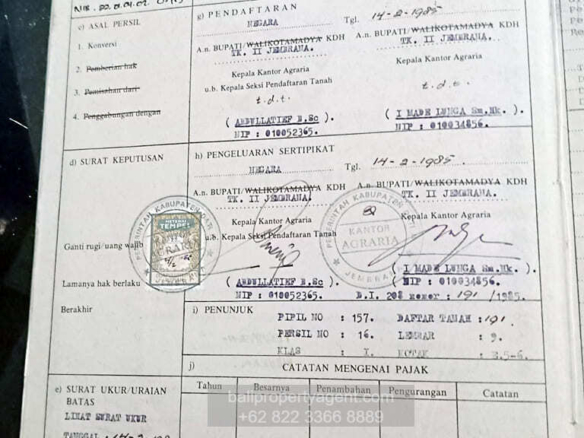 c) ASAL PERSIL
1. Konversi
2. Pemberian hak
3. Pemisahan dari:
4. Penggabungan dengan
g) PENDAFTARAN
NEGARA Tgl. 14-2-1985.
A.n. BUPATI/WALIKOTAMADYA KDH
TK. II JEMBRANA.
A.n. BUPATI/WALIKOTAMADYA KDH
TK. II JEMBRANA.
Kepala Kantor Agraria
u.b. Kepala Seksi Pendaftaran Tanah
t.d.t.
( ABDULLATIEF B.Sc ).
NIP : 010052365.
Kepala Kantor Agraria
t.d.t.
( I MADE LUNGA Sm.Hk. ).
NIP : 010034856.
d) SURAT KEPUTUSAN
Ganti rugi/uang wajib
Lamanya hak berlaku
Berakhir
h) PENGELUARAN SERTIPIKAT
NEGARA Tgl. 14-2-1985.
A.n. BUPATI/WALIKOTAMADYA KDH
TK. II JEMBRANA.
A.n. BUPATI/WALIKOTAMADYA KDH
TK. II JEMBRANA.
Kepala Kantor Agraria
u.b. Kepala Seksi Pendaftaran Tanah
( ABDULLATIEF B.Sc )
NIP : 010052365.
Kepala Kantor Agraria
( I MADE LUNGA Sm.Hk. ).
NIP : 010034856.
KANTOR
AGRARIA
JEMBRANA
TEMPEL
D.I. 208 nomor : 191 /1985.
i) PENUNJUK
PIPIL NO : 157. DAFTAR TANAH : 191.
PERSIL NO : 16. LEMBAR : 9.
KLAS : I. KOTAK : 3.5-6.
j) CATATAN MENGENAI PAJAK
Tahun Besarnya Penambahan Pengurangan Catatan
e) SURAT UKUR/URAIAN
BATAS
LIHAT SURAT UKUR
TANGGAL
balipropertyagent.com
+62 822 3366 8889